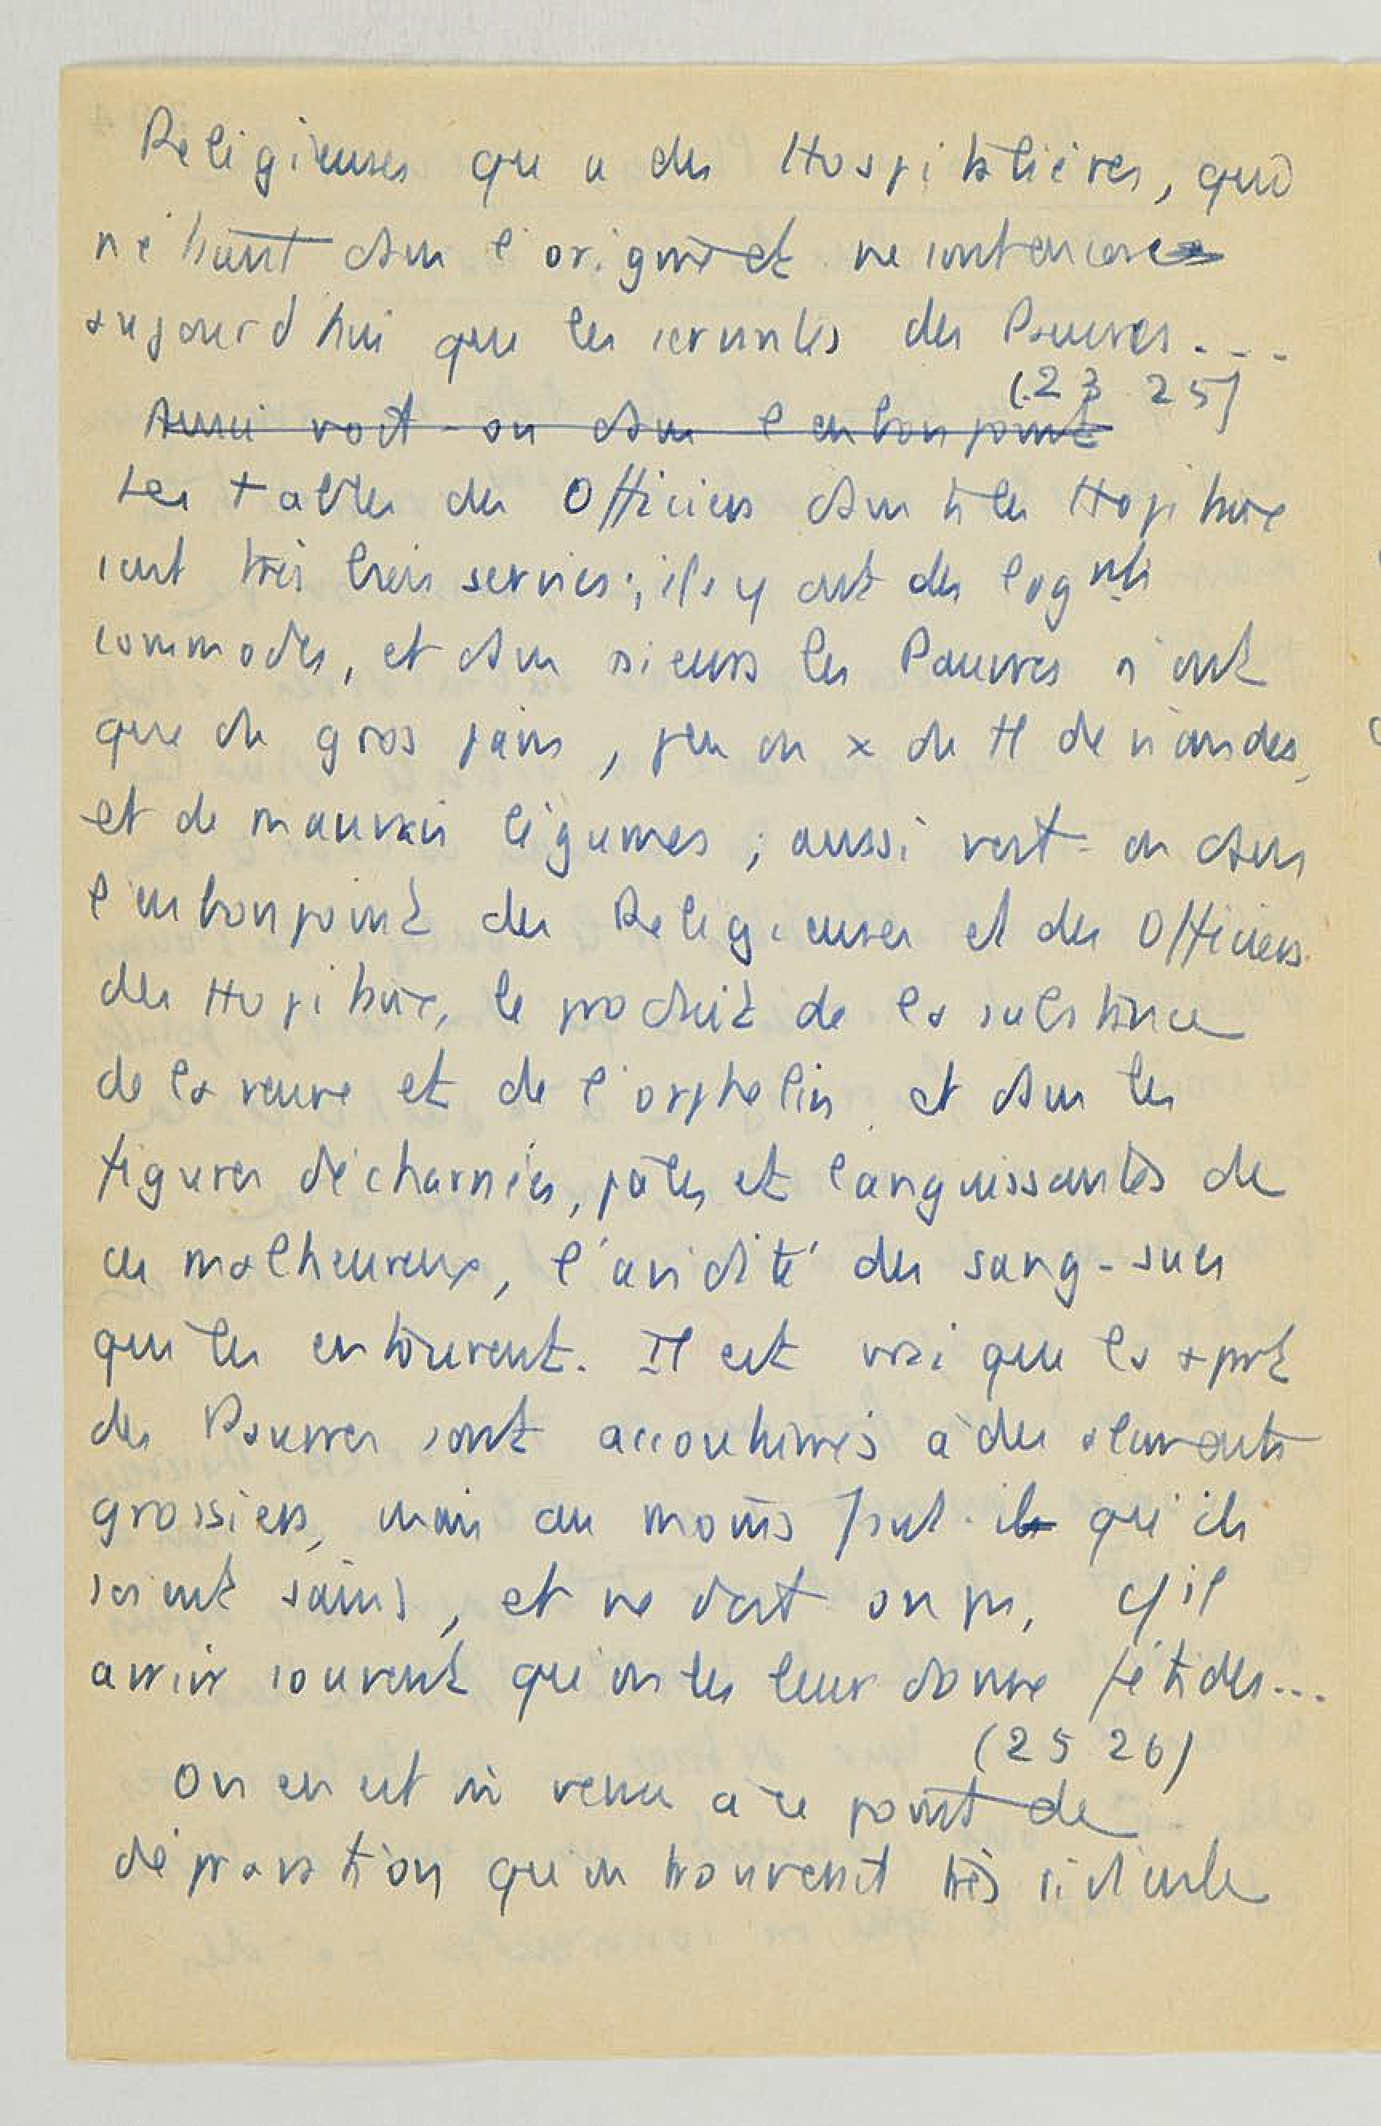 Religieuses qu'à des Hospitalières, qui
n'étaient dans l'origine et ne sont encore
aujourd'hui que les servantes des Pauvres....
(23 25)
Aussi voit-on dans l'embonpoint
Les tables des Officiers dans ts les Hopitaux
sont très bien servies; ils y ont des logmts
commodes, et dans sieurs les Pauvres n'ont
que du gros pain, peu ou x de tt de viandes,
et de mauvais légumes; aussi voit-on dans
l'embonpoint des Religieuses et des Officiers
des Hopitaux, le produit de la substance
de la veuve et de l'orphelin et dans les
figures décharnées, pâles et languissantes de
ces malheureux, l'avidité des sang-sues
qui les entourent. Il est vrai que la + prt
des Pauvres sont accoutumés à des alimants
grossiers, mais au moins faut-il qu'ils
soient sains, et ne doit on pas, qu'il
arrive souvent qu'on les leur donne fétides...
(25 26)
On en est venu à ce point de
dépravation qu'on trouverait très ridicule